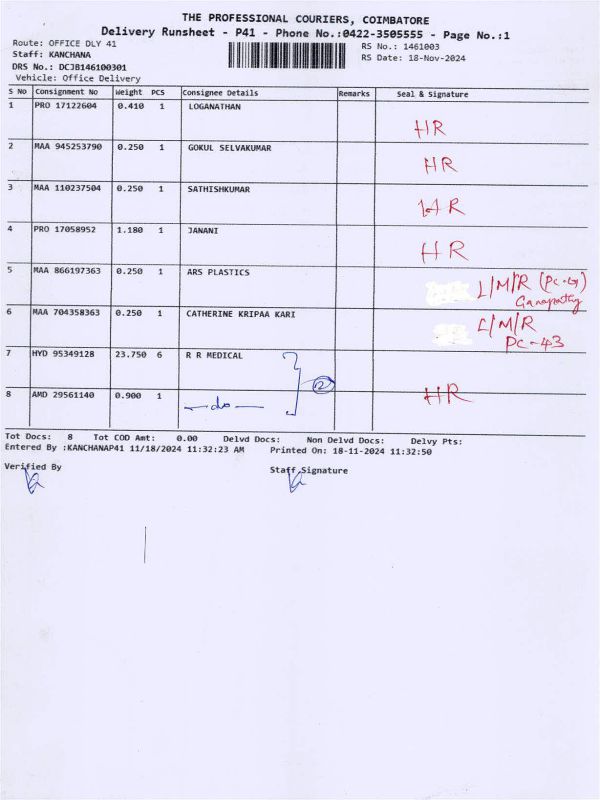 THE PROFESSIONAL COURIERS, COIMBATORE
Delivery Runsheet - P41 - Phone No.:0422-3505555 - Page No.:1
Route: OFFICE DLY 41
Staff: KANCHANA
DRS No.: DCJB146100301
Vehicle: Office Delivery
RS No.: 1461003
RS Date: 18-Nov-2024
S No Consignment No Weight PCS Consignee Details Remarks Seal & Signature
1 PRO 17122604 0.410 1 LOGANATHAN
HR
2 MAA 945253790 0.250 1 GOKUL SELVAKUMAR
HR
3 MAA 110237504 0.250 1 SATHISHKUMAR
HR
4 PRO 17058952 1.180 1 JANANI
HR
5 MAA 866197363 0.250 1 ARS PLASTICS
L/M/R
6 MAA 704358363 0.250 1 CATHERINE KRIPAA KARI
L/M/R
PC-43
7 HYD 95349128 23.750 6 R R MEDICAL
2
8 AMD 29561140 0.900 1 -do-
HR
Tot Docs: 8 Tot COD Amt: 0.00 Delvd Docs: Non Delvd Docs: Delvy Pts:
Entered By :KANCHANAP41 11/18/2024 11:32:23 AM Printed On: 18-11-2024 11:32:50
Verified By Staff Signature